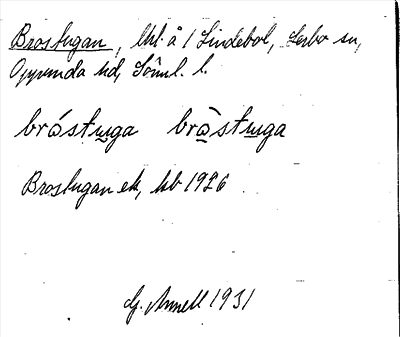 Brostugan, lht. å 1 Lindebol, Lerbo sn,
Oppunda hd, Söml. l.
bróstɯ̲ga brὰ̲stɯ̲ga
Brostugan ek, kb 1926
G. Annell 1931